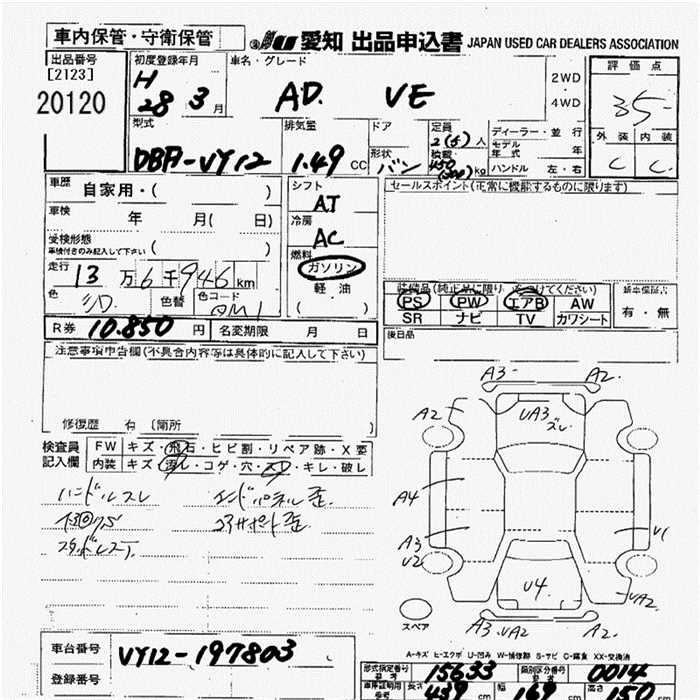 車内保管・守衛保管
愛知 出品申込書 JAPAN USED CAR DEALERS ASSOCIATION
出品番号
[2123]
20120
初度登録年月
H
28 3月
車名・グレード
AD VE
2WD
4WD
評価点
35-
外装 内装
C C
型式
DBF-VY12
排気量
1.49 CC
ドア
形状
バン
定員
2(5)人
積載
450
kg
ディーラー・並行
モデル年式 年
ハンドル 左・右
車歴
自家用・( )
車検
年 月( 日)
受検形態
車検付きのみ記入して下さい ( )
走行
13万6千946km
色
色替
色コード
シフト
AT
冷房
AC
燃料
ガソリン
軽油
( )
セールスポイント(正常に機能するものに限ります)
装備品(純正品に限り してください)
PS PW エアB AW
SR ナビ TV カワシート
新車保証書
有・無
R券 10.850円 名変期限 月 日
後日品
注意事項申告欄(不具合内容等は具体的に記入して下さい)
修復歴 有 〔箇所 〕
検査員
記入欄
FW キズ・飛石・ヒビ割・リペア跡・X要
内装 キズ・汚れ・コゲ・穴・スレ・キレ・破レ
ハンドルスレ
エンドパネル歪
コアサポート歪
スタッドレス
A3 A2
A2
UA3
ズレ
A4
A3
U2
U1
U4
UA2
A3 UA2 A2
スペア
A-キズ E-エクボ U-凹み W-補修跡 S-サビ C-腐食 XX-交換済
車台番号
VY12-197803
登録番号
型式指定番号
15633
類別区分番号
0014
長さ
439 cm
幅
169 cm
高さ
150 cm